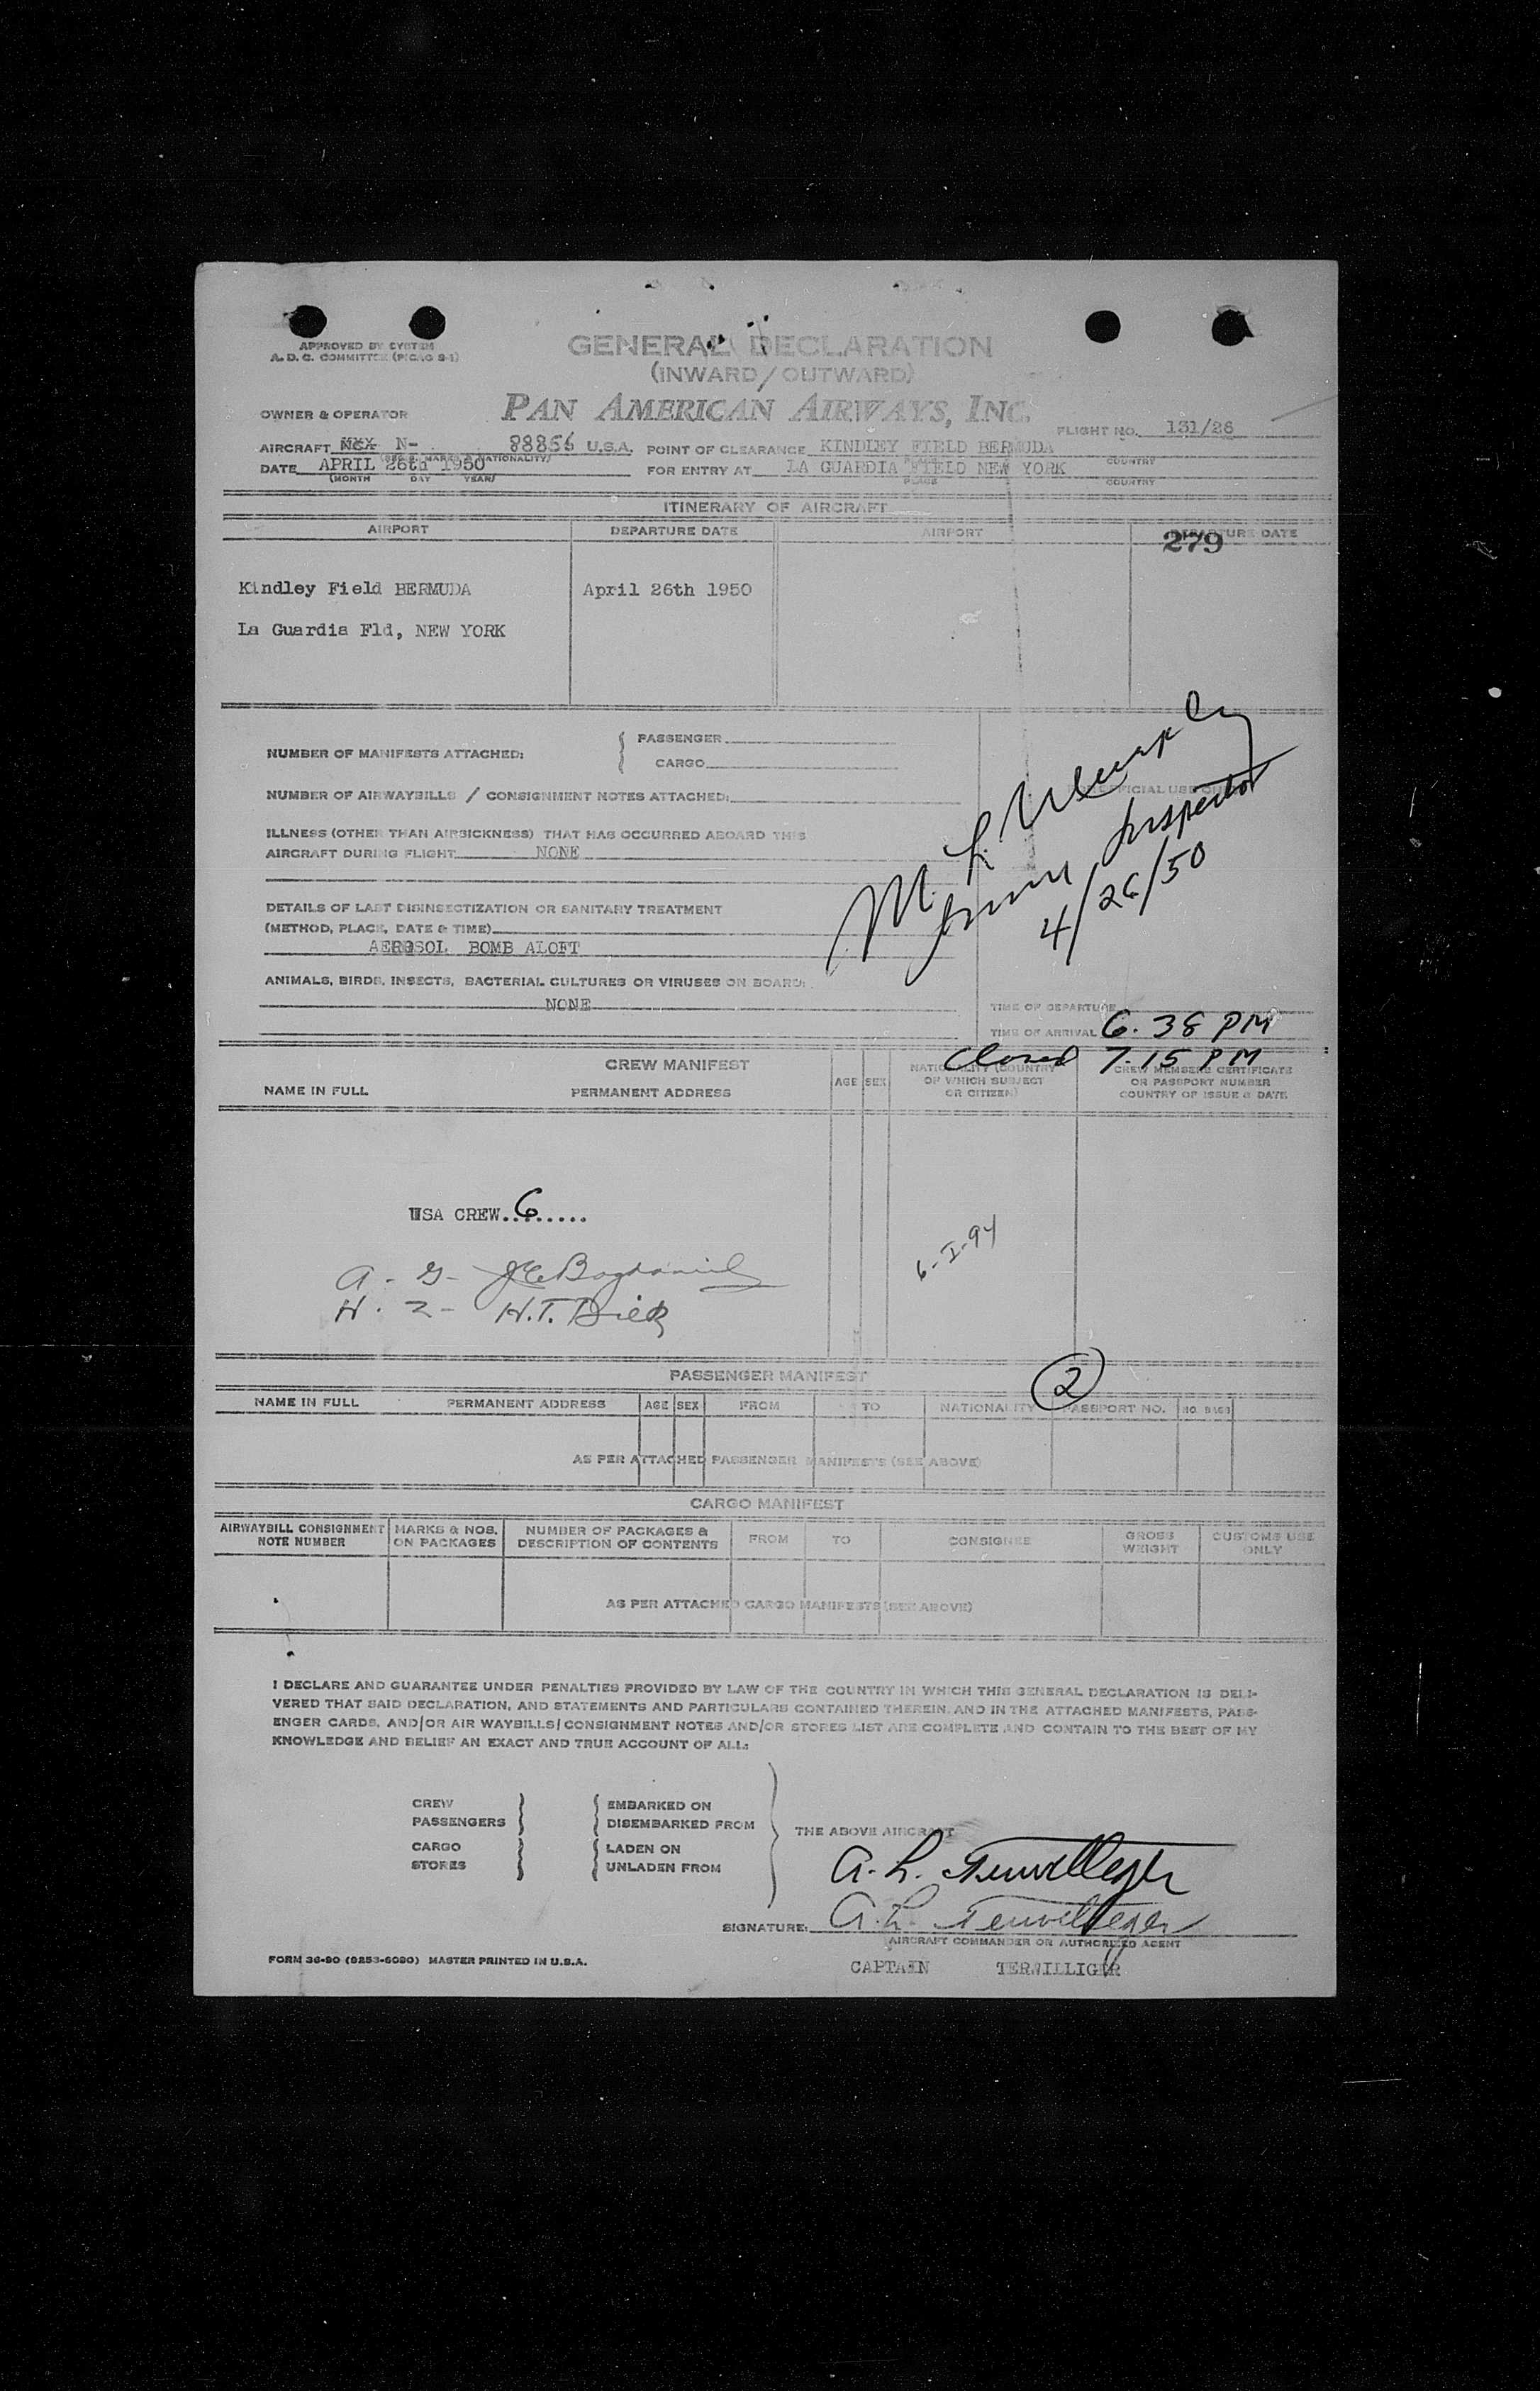 APPROVED BY SYSTEM
A. D. C. COMMITTEE (PICAO S-1)
GENERAL DECLARATION
(INWARD/OUTWARD)
OWNER & OPERATOR PAN AMERICAN AIRWAYS, INC.
FLIGHT NO. 131/26
AIRCRAFT N- 88856 U.S.A. POINT OF CLEARANCE KINDLEY FIELD BERMUDA
(REG. MARKS & NATIONALITY) PLACE COUNTRY
DATE APRIL 26th 1950 FOR ENTRY AT LA GUARDIA FIELD NEW YORK
(MONTH DAY YEAR) PLACE COUNTRY
ITINERARY OF AIRCRAFT
AIRPORT DEPARTURE DATE AIRPORT DEPARTURE DATE
279
Kindley Field BERMUDA April 26th 1950
La Guardia Fld, NEW YORK
NUMBER OF MANIFESTS ATTACHED: PASSENGER
CARGO
NUMBER OF AIRWAYBILLS / CONSIGNMENT NOTES ATTACHED:
OFFICIAL USE
ILLNESS (OTHER THAN AIRSICKNESS) THAT HAS OCCURRED ABOARD THIS
AIRCRAFT DURING FLIGHT NONE
M. L.
Inspector
4/26/50
DETAILS OF LAST DISINSECTIZATION OR SANITARY TREATMENT
(METHOD, PLACE, DATE & TIME)
AEROSOL BOMB ALOFT
ANIMALS, BIRDS, INSECTS, BACTERIAL CULTURES OR VIRUSES ON BOARD:
NONE
TIME OF DEPARTURE
TIME OF ARRIVAL 6.38 PM
Closed 7.15 PM
CREW MANIFEST
NAME IN FULL PERMANENT ADDRESS AGE SEX NATIONALITY (COUNTRY OF WHICH SUBJECT OR CITIZEN) CREW MEMBERS CERTIFICATE OR PASSPORT NUMBER COUNTRY OF ISSUE & DATE
USA CREW..6......
6-I-94
H. 2-
PASSENGER MANIFEST
2
NAME IN FULL PERMANENT ADDRESS AGE SEX FROM TO NATIONALITY PASSPORT NO. NO. BAGS
AS PER ATTACHED PASSENGER MANIFESTS (SEE ABOVE)
CARGO MANIFEST
AIRWAYBILL CONSIGNMENT NOTE NUMBER MARKS & NOS. ON PACKAGES NUMBER OF PACKAGES & DESCRIPTION OF CONTENTS FROM TO CONSIGNEE GROSS WEIGHT CUSTOMS USE ONLY
AS PER ATTACHED CARGO MANIFESTS (SEE ABOVE)
I DECLARE AND GUARANTEE UNDER PENALTIES PROVIDED BY LAW OF THE COUNTRY IN WHICH THIS GENERAL DECLARATION IS DELI-
VERED THAT SAID DECLARATION, AND STATEMENTS AND PARTICULARS CONTAINED THEREIN, AND IN THE ATTACHED MANIFESTS, PASS-
ENGER CARDS, AND/OR AIR WAYBILLS/CONSIGNMENT NOTES AND/OR STORES LIST ARE COMPLETE AND CONTAIN TO THE BEST OF MY
KNOWLEDGE AND BELIEF AN EXACT AND TRUE ACCOUNT OF ALL:
CREW EMBARKED ON
PASSENGERS DISEMBARKED FROM
THE ABOVE AIRCRAFT
CARGO LADEN ON
STORES UNLADEN FROM
A. L. Terwilleger
SIGNATURE: A. L. Terwilleger
AIRCRAFT COMMANDER OR AUTHORIZED AGENT
FORM 36-90 (9253-6090) MASTER PRINTED IN U.S.A.
CAPTAIN TERWILLIGER